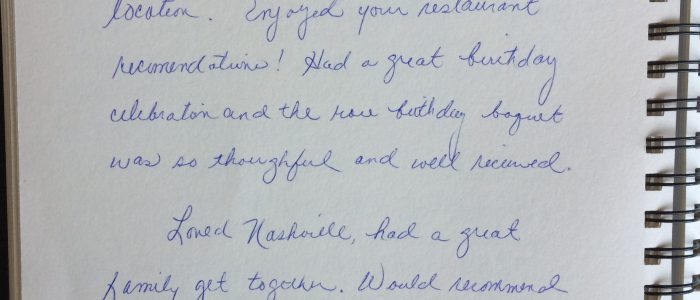 location. Enjoyed your restaurant
recomendations! Had a great birthday
celebration and the rose birthday boquet
was so thoughtful and well received.
Loved Nashville, had a great
family get together. Would recommend